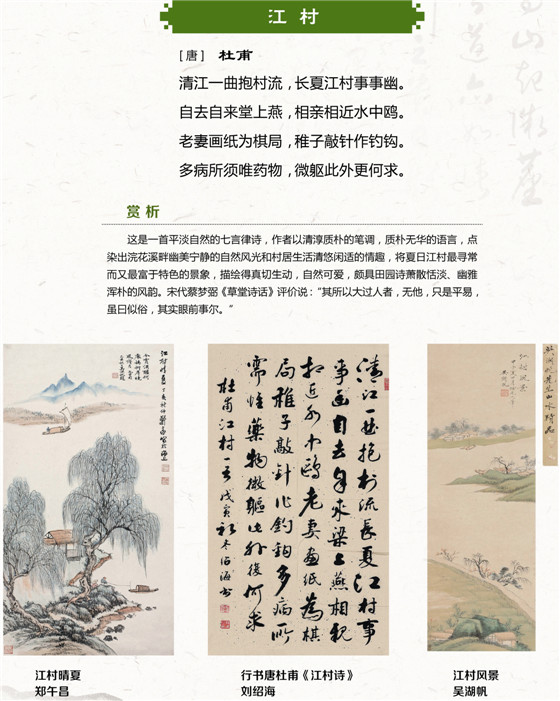 江 村
[唐] 杜甫
清江一曲抱村流，长夏江村事事幽。
自去自来堂上燕，相亲相近水中鸥。
老妻画纸为棋局，稚子敲针作钓钩。
多病所须唯药物，微躯此外更何求。
赏 析
这是一首平淡自然的七言律诗，作者以清淳质朴的笔调，质朴无华的语言，点
染出浣花溪畔幽美宁静的自然风光和村居生活清悠闲适的情趣，将夏日江村最寻常
而又最富于特色的景象，描绘得真切生动，自然可爱，颇具田园诗萧散恬淡、幽雅
浑朴的风韵。宋代蔡梦弼《草堂诗话》评价说：“其所以大过人者，无他，只是平易，
虽曰似俗，其实眼前事尔。”
清江一曲抱村流長夏江村事
事幽自去自來梁上燕相親
相近水中鷗老妻畫紙為棋
局稚子敲針作釣鈎多病所
需惟藥物微軀此外復何求
杜甫江村一首戊寅
江村晴夏
郑午昌
行书唐杜甫《江村诗》
刘绍海
江村风景
吴湖帆